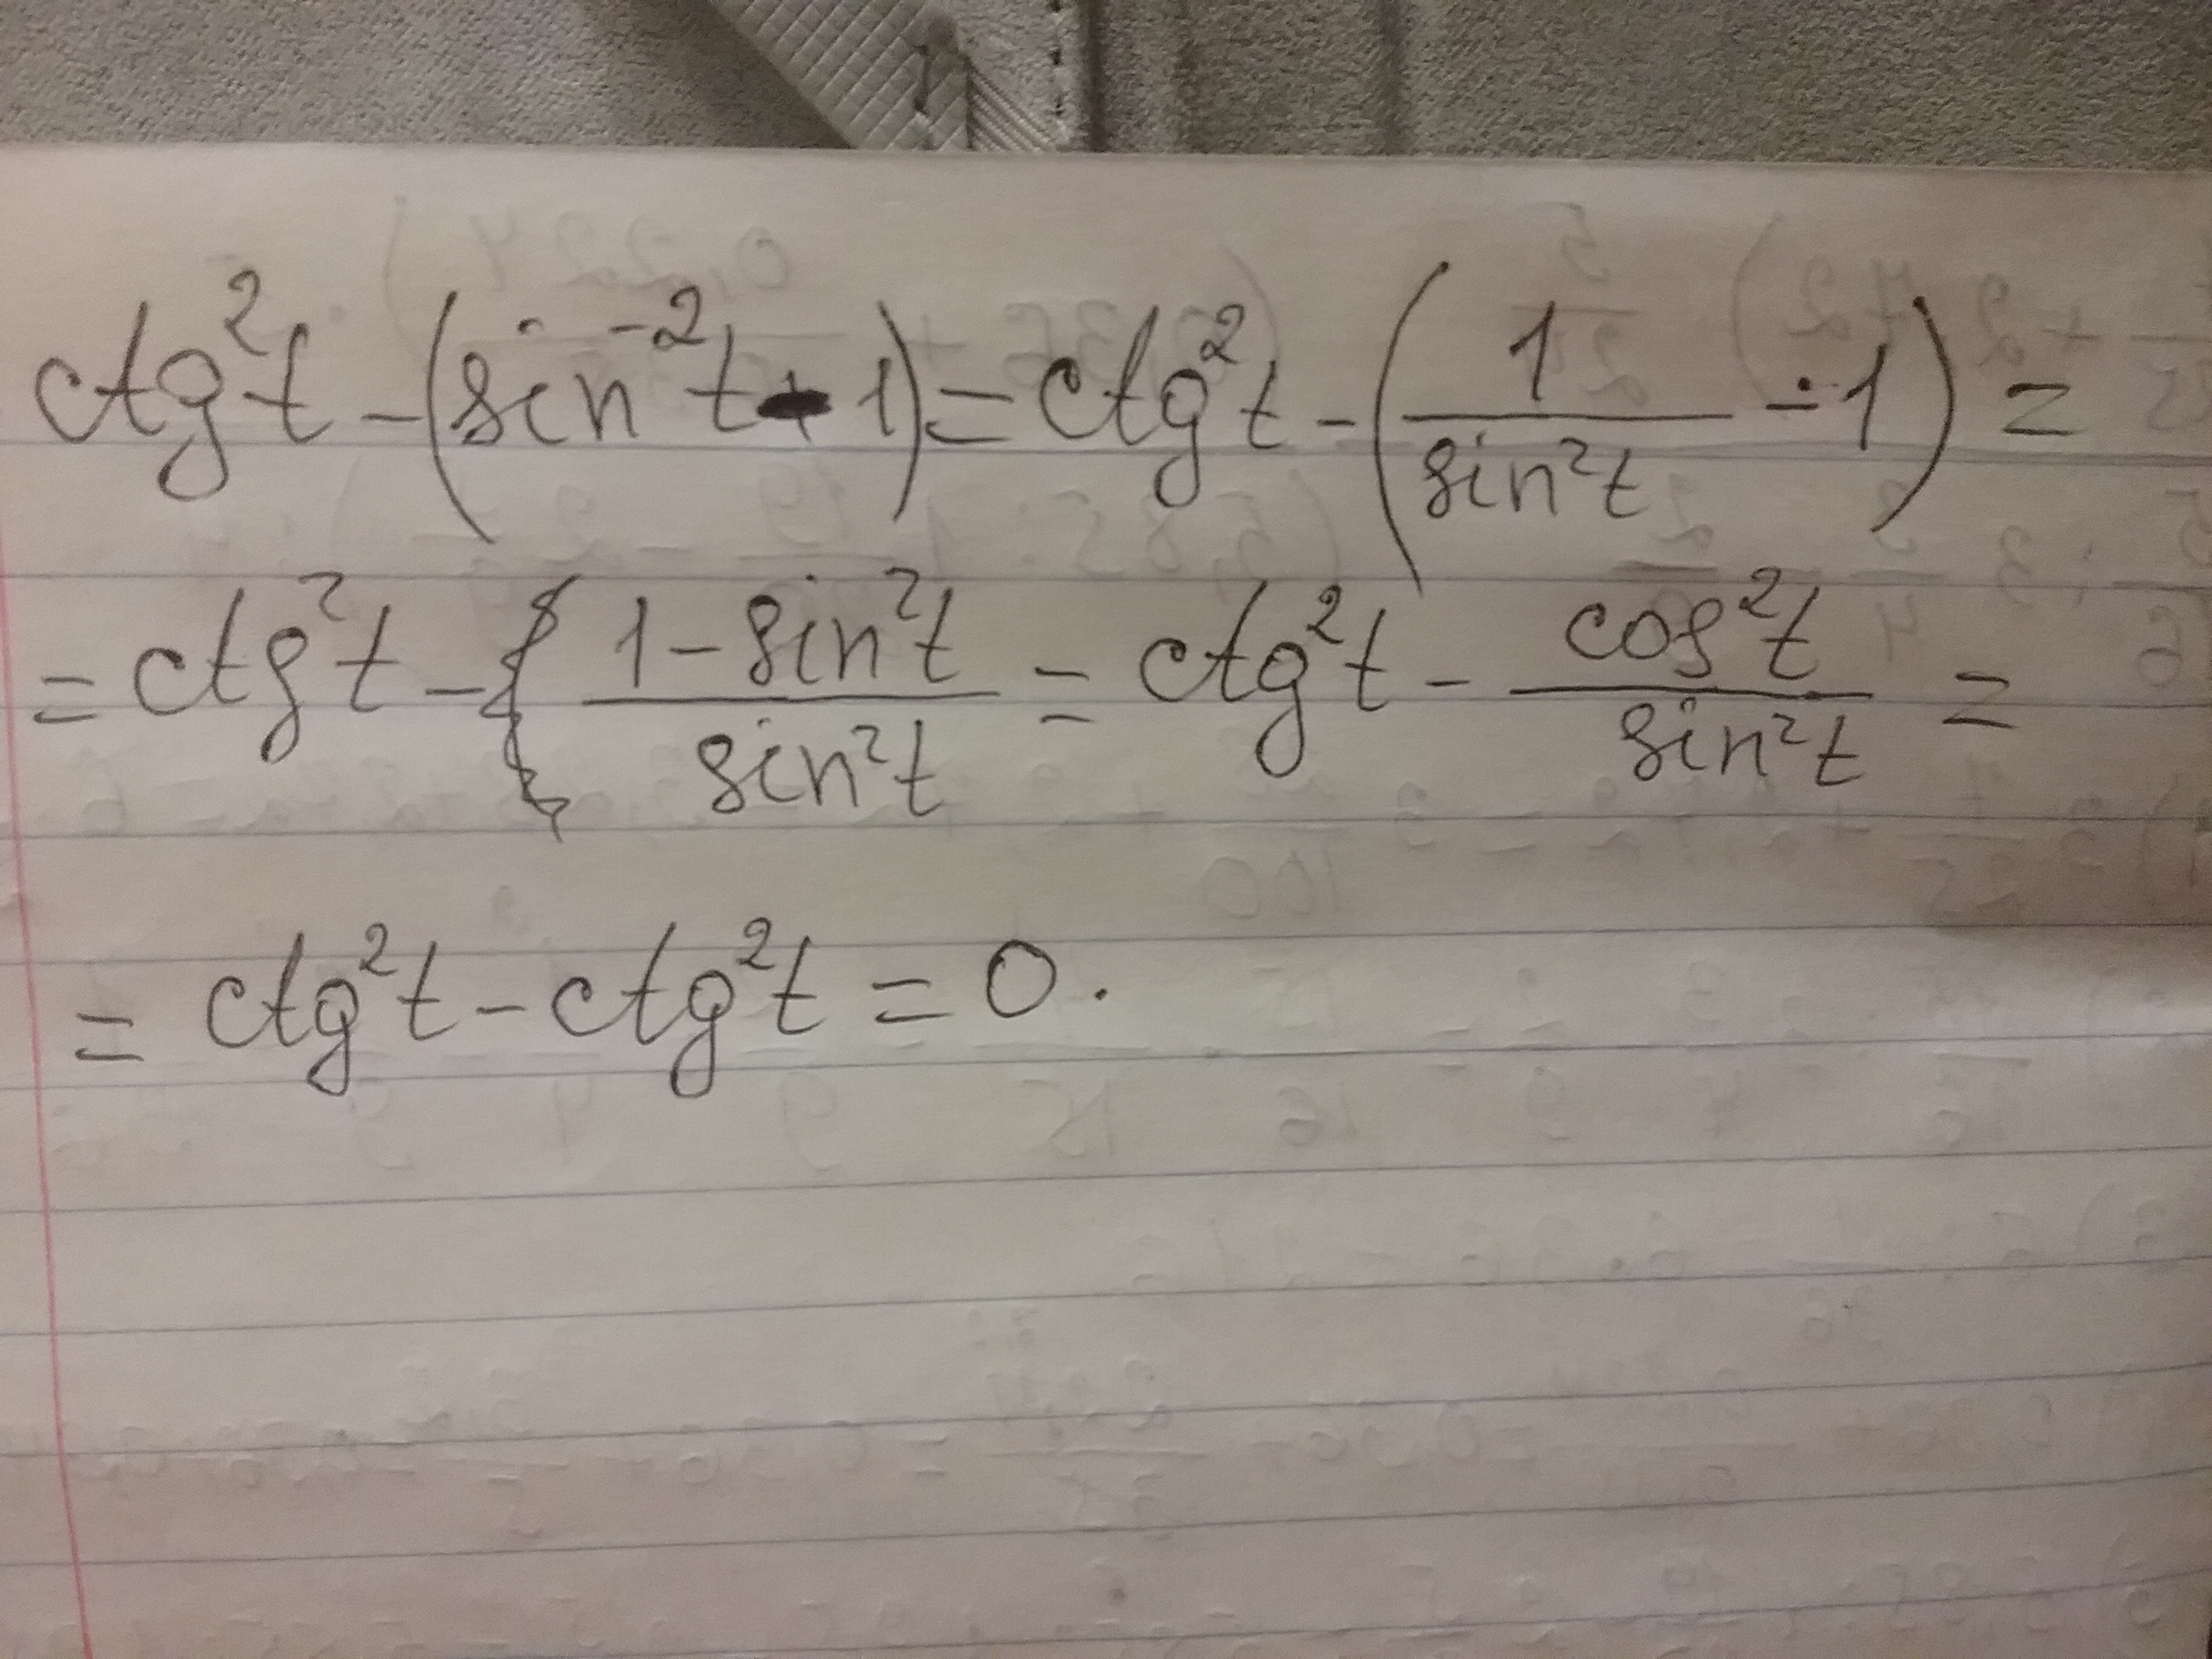 ctg²t - (sin⁻²t - 1) = ctg²t - (1/sin²t - 1) =
= ctg²t - (1 - sin²t)/sin²t = ctg²t - cos²t/sin²t =
= ctg²t - ctg²t = 0.